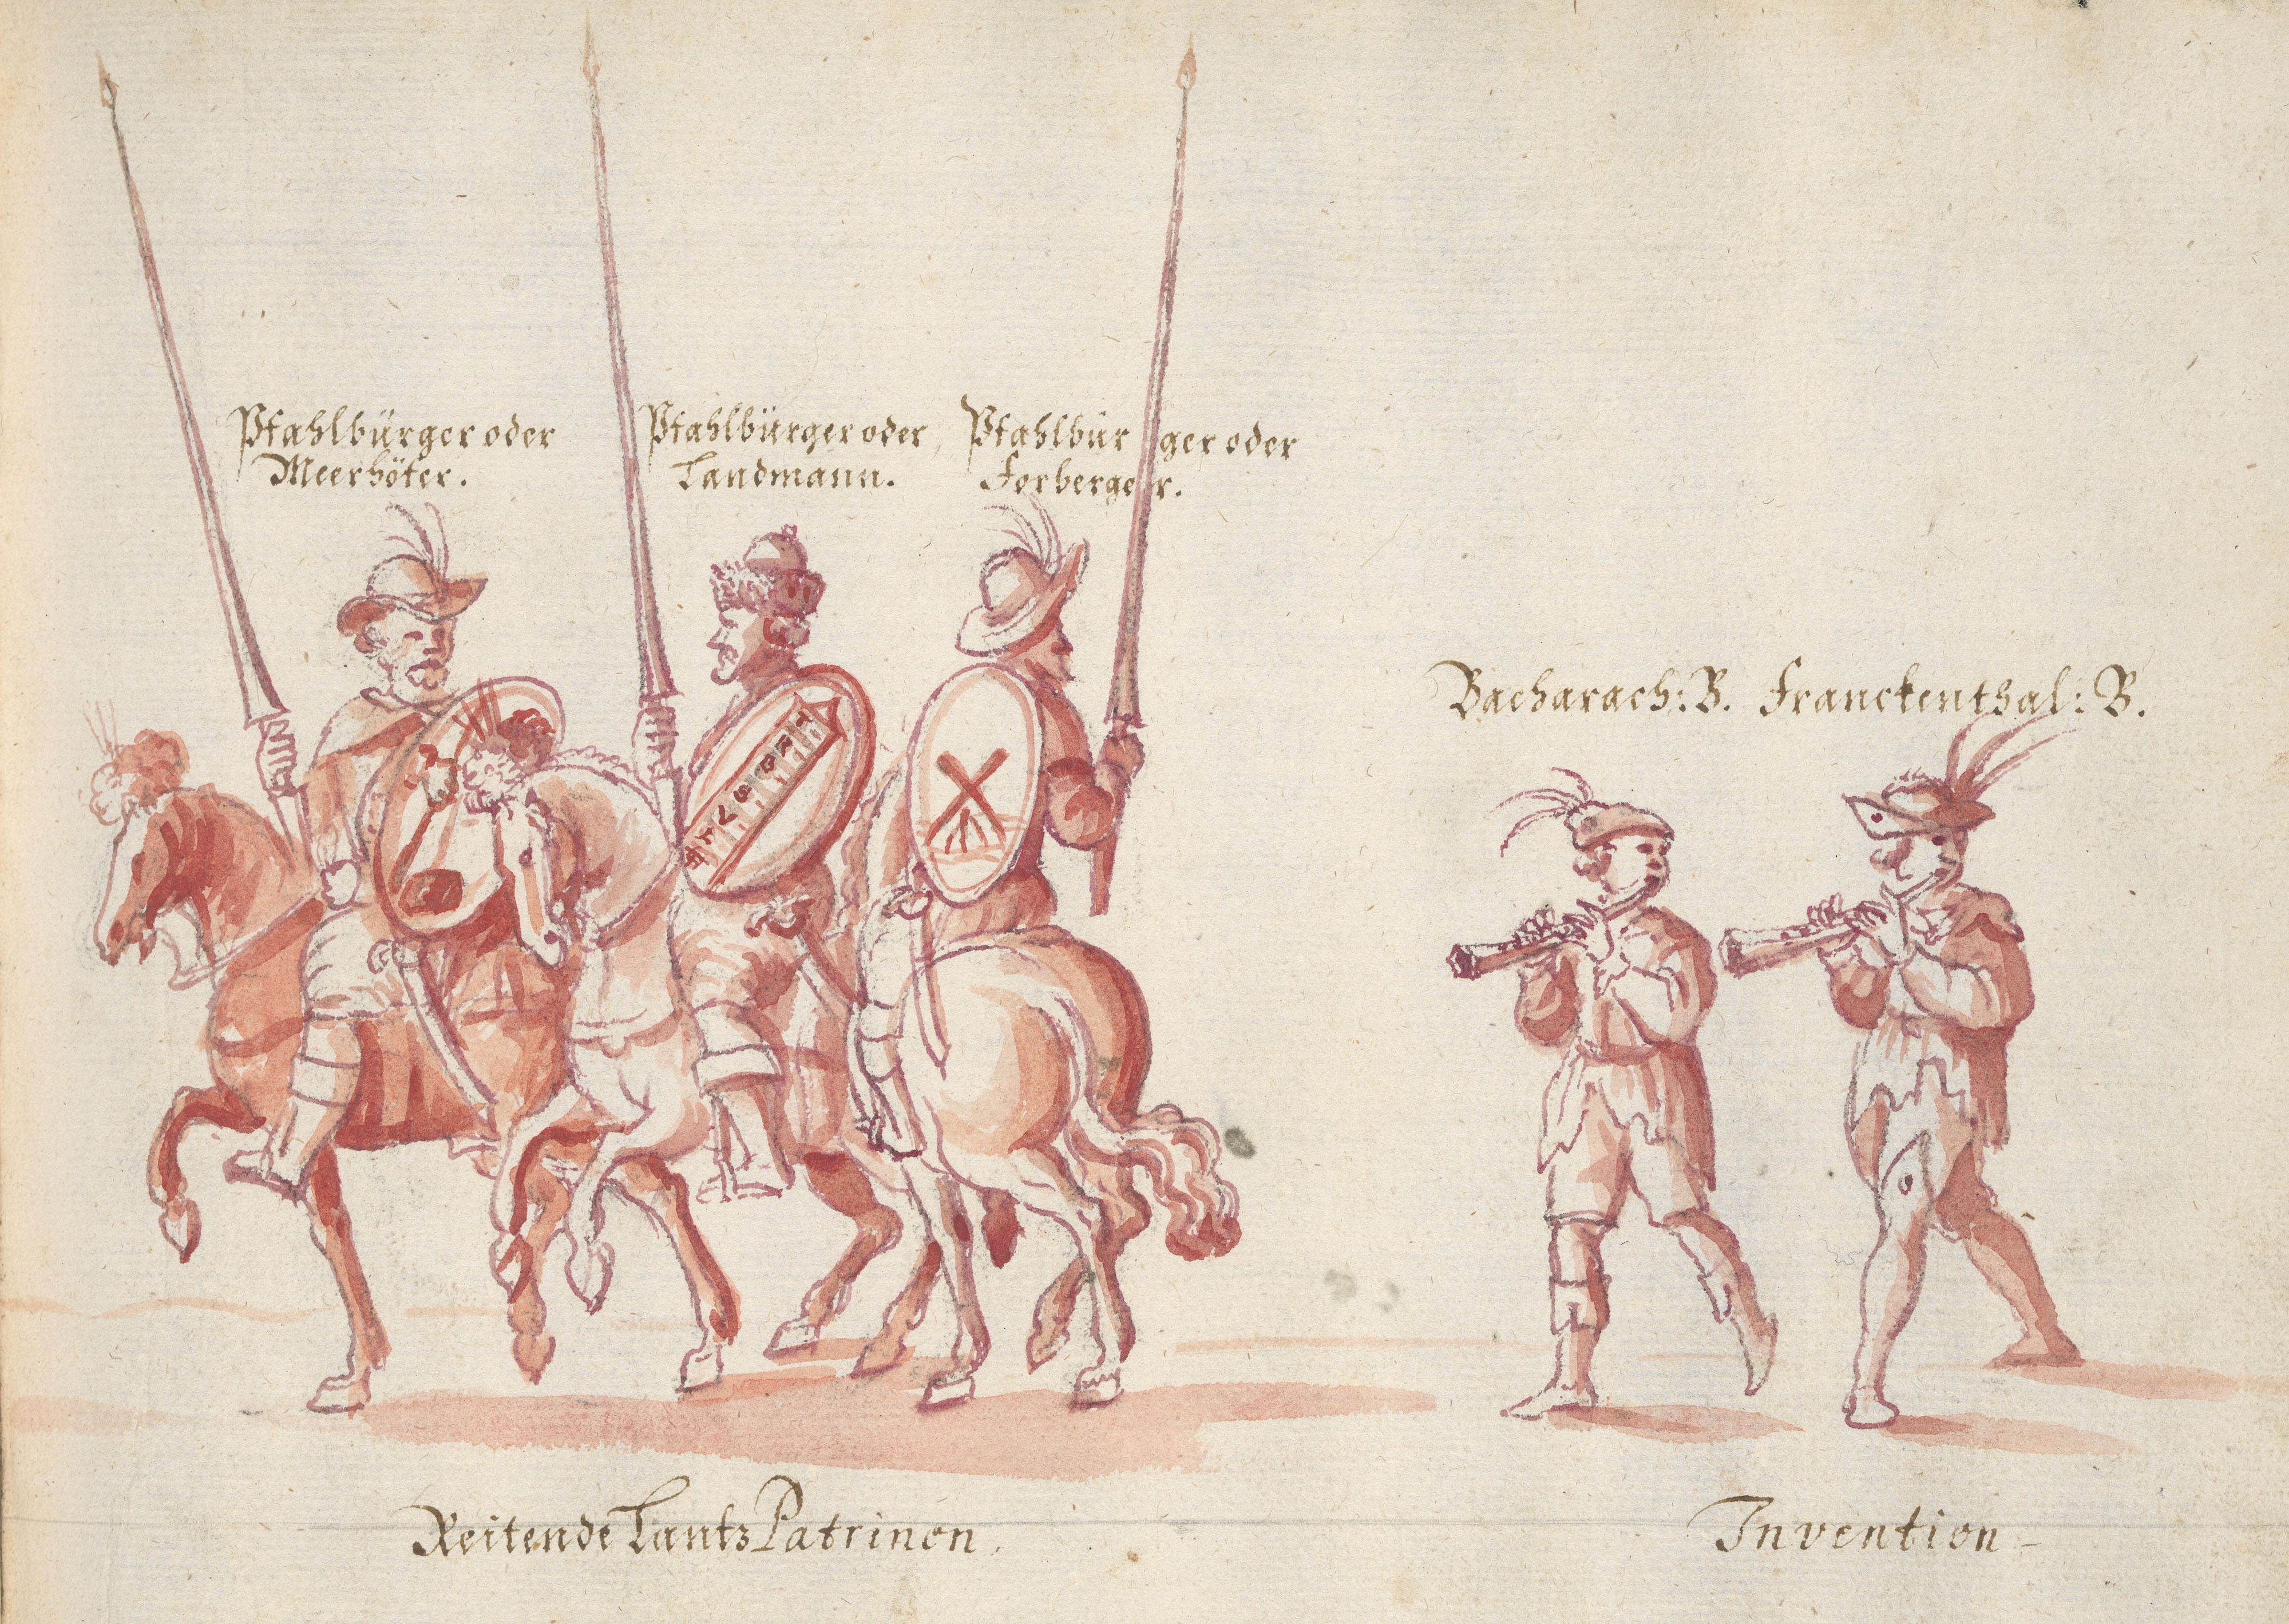 Pfahlbürger oder
Meerhöfer.
Pfahlbürger oder
Landmann.
Pfahlbürger oder
Forberger.
Bacharach: B. Franckenthal: B.
Reitende Lantz Patrinen.
Invention